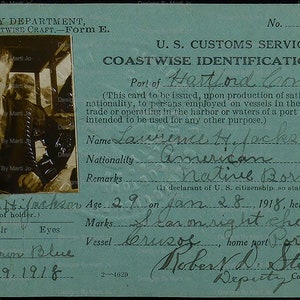 Y DEPARTMENT,
TWISE CRAFT.—FORM E.
No.
U. S. CUSTOMS SERVIC
COASTWISE IDENTIFICATION
Port of Hartford Con
(This card to be issued, upon production of sati
nationality, to persons employed on vessels in the
trade or operating in the harbor or waters of a port
intended to be used for any other purpose.)
Name Lawrence H. Jackso
Nationality American
Remarks Native Bor
(If declarant of U. S. citizenship, so stat
H. Jackson
of holder.)
Age 29 on Jan 28, 1918, he
ir Eyes
Marks Scar on right che
wn Blue
Vessel Crusoe, home port
9. 1918
2—4629
Robert D. St
Deputy Co